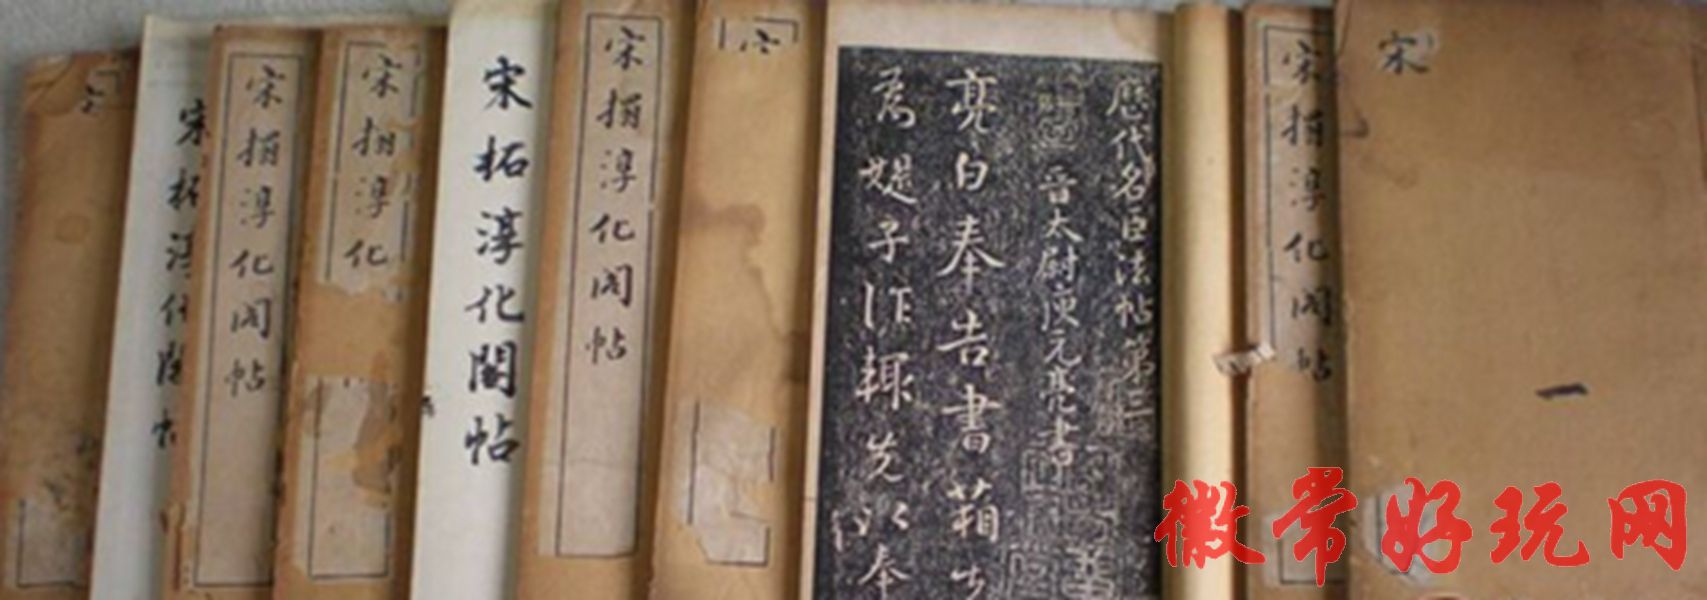 宋拓淳化閣帖
宋搨淳化閣帖
宋搨淳化
宋拓淳化閣帖
宋搨淳化閣帖
歷代名臣法帖第三
晉太尉庾元亮書
亮白奉告書箱
為媞子作輒先以奉
宋搨淳化閣帖
宋
一
徽常好玩网